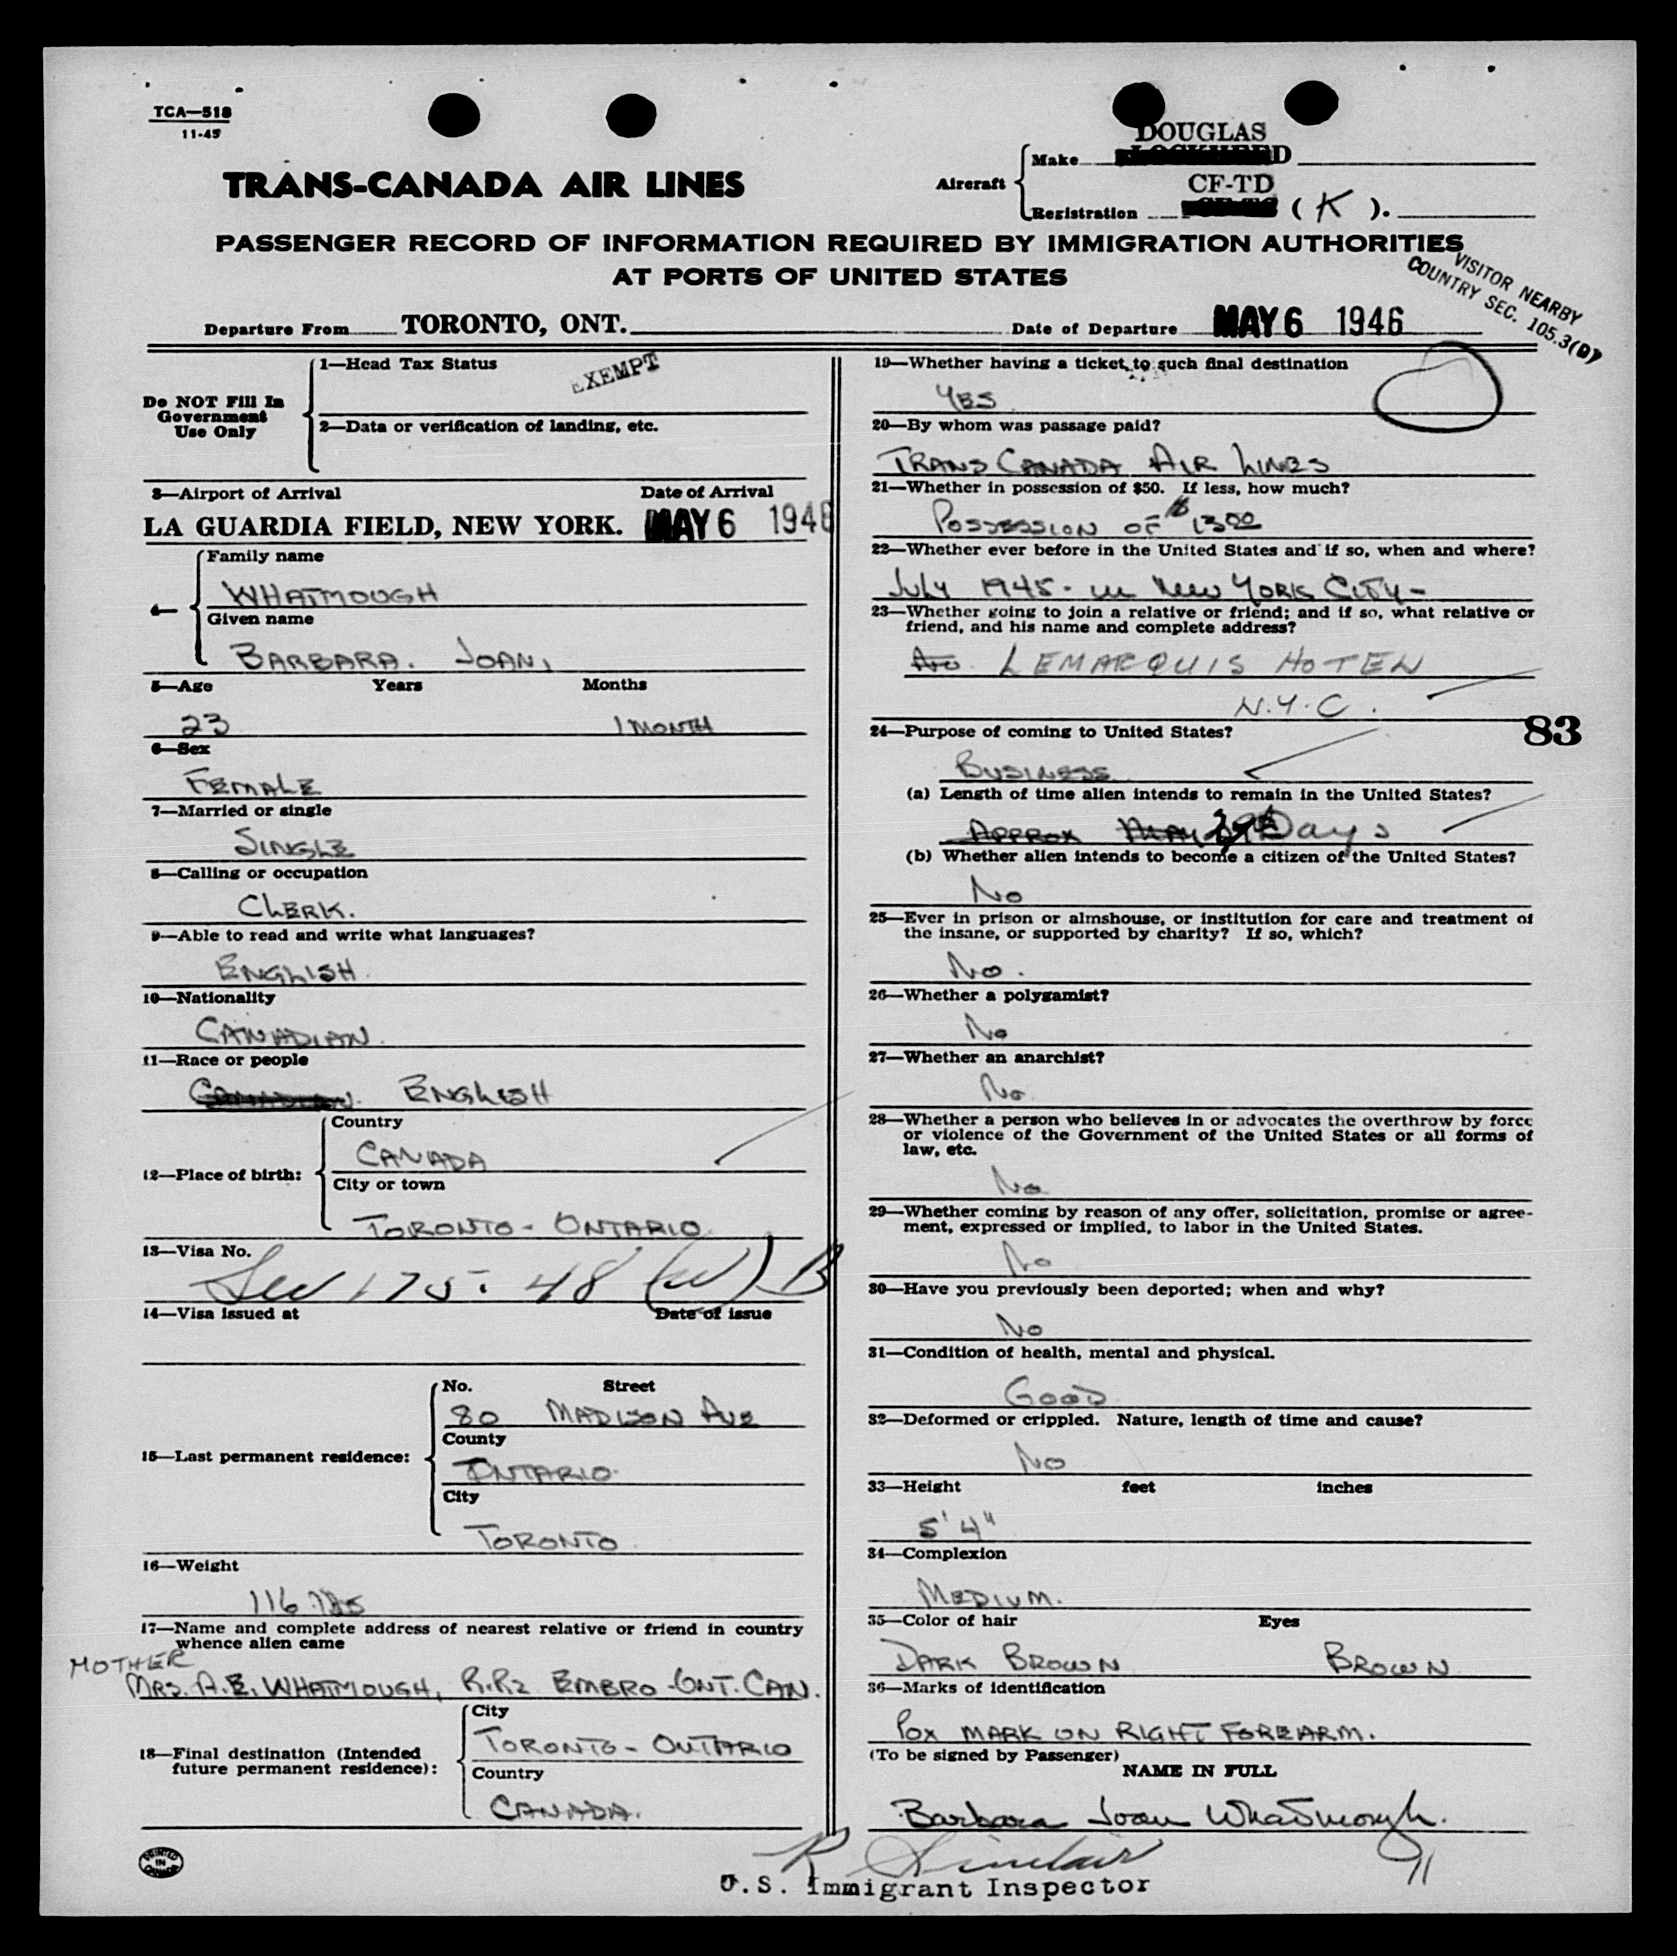 TCA—518
11-45
DOUGLAS
Make
TRANS-CANADA AIR LINES
Aircraft
CF-TD
Registration ( K ).
PASSENGER RECORD OF INFORMATION REQUIRED BY IMMIGRATION AUTHORITIES
AT PORTS OF UNITED STATES
VISITOR NEARBY
COUNTRY SEC. 105.3(D)
Departure From TORONTO, ONT. Date of Departure MAY 6 1946
Do NOT Fill In
Government
Use Only
1—Head Tax Status
EXEMPT
2—Data or verification of landing, etc.
3—Airport of Arrival Date of Arrival
LA GUARDIA FIELD, NEW YORK. MAY 6 1946
4—
Family name
WHATMOUGH
Given name
BARBARA. JOAN,
5—Age Years Months
23 1 MONTH
6—Sex
FEMALE
7—Married or single
SINGLE
8—Calling or occupation
CLERK.
9—Able to read and write what languages?
ENGLISH.
10—Nationality
CANADIAN.
11—Race or people
CANADIAN. ENGLISH
12—Place of birth:
Country
CANADA
City or town
TORONTO - ONTARIO.
13—Visa No.
Sec 175.48 (w) B
14—Visa issued at Date of issue
15—Last permanent residence:
No. Street
80 MADISON AVE
County
ONTARIO.
City
TORONTO
16—Weight
116 lbs
17—Name and complete address of nearest relative or friend in country
whence alien came
MOTHER
MRS. A.E. WHATMOUGH, R.R2 EMBRO - ONT. CAN.
18—Final destination (Intended
future permanent residence):
City
TORONTO - ONTARIO
Country
CANADA.
PRINTED
IN
CANADA
19—Whether having a ticket to such final destination
YES
20—By whom was passage paid?
TRANS CANADA AIR LINES
21—Whether in possession of $50. If less, how much?
POSSESSION OF $13.00
22—Whether ever before in the United States and if so, when and where?
July 1945 - in New YORK CITY -
23—Whether going to join a relative or friend; and if so, what relative or
friend, and his name and complete address?
LEMARQUIS HOTEL
N.Y.C.
83
24—Purpose of coming to United States?
BUSINESS
(a) Length of time alien intends to remain in the United States?
APPROX MAY 29 Days
(b) Whether alien intends to become a citizen of the United States?
No
25—Ever in prison or almshouse, or institution for care and treatment of
the insane, or supported by charity? If so, which?
No.
26—Whether a polygamist?
No
27—Whether an anarchist?
No
28—Whether a person who believes in or advocates the overthrow by force
or violence of the Government of the United States or all forms of
law, etc.
No
29—Whether coming by reason of any offer, solicitation, promise or agree-
ment, expressed or implied, to labor in the United States.
No
30—Have you previously been deported; when and why?
No
31—Condition of health, mental and physical.
GOOD
32—Deformed or crippled. Nature, length of time and cause?
No
33—Height feet inches
5' 4"
34—Complexion
MEDIUM.
35—Color of hair Eyes
DARK BROWN BROWN
36—Marks of identification
POX MARK ON RIGHT FOREARM.
(To be signed by Passenger)
NAME IN FULL
Barbara Joan Whatmough.
R Sinclair
U.S. Immigrant Inspector